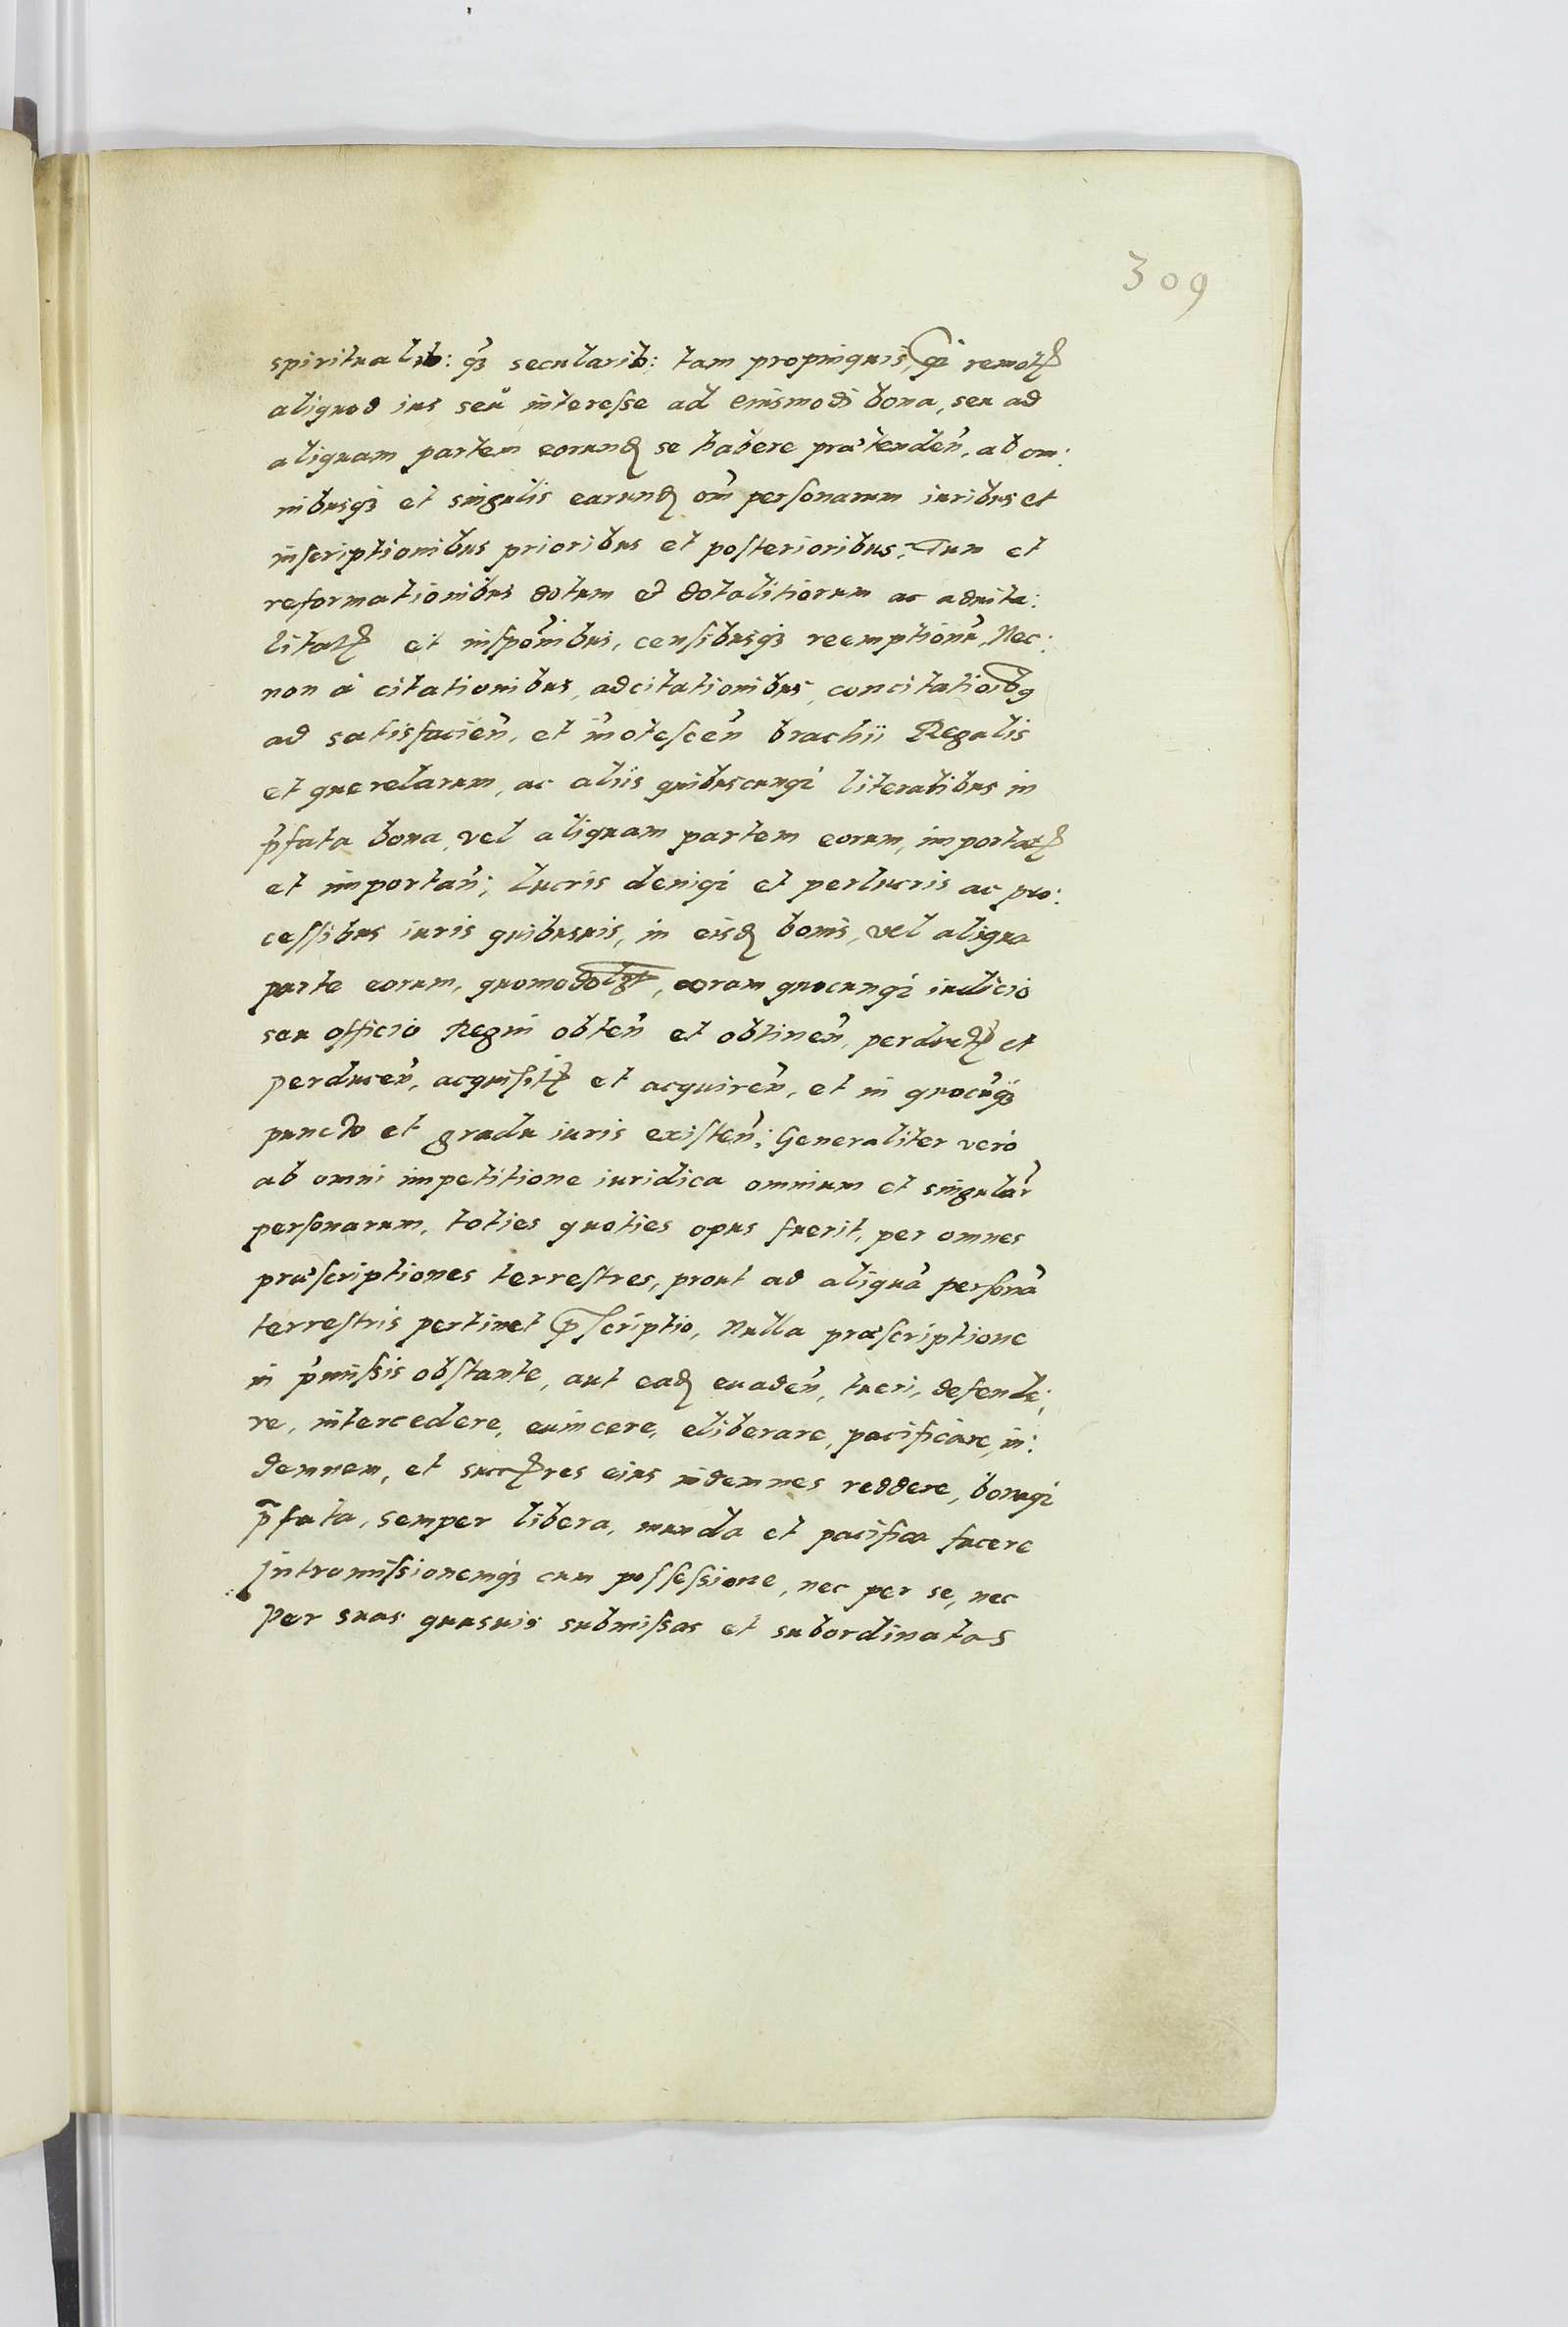 309
spiritualib: qꝫ secularib: tam propinquis, qꝫ remotꝭ
aliquod ius seu interesse ad eiusmodi bona, seu ad
aliquam partem eorundꝫ se habere prætenden̄, ab om:
nibusqꝫ et singulis earundꝫ om̄ personarum iuribus et
inscriptionibus prioribus et posterioribus: Tum et
reformationibus dotum et dotalitiorum ac aduita:
litatꝭ et insp̄onibus, censibusqꝫ reemptionū, Nec:
non à citationibus, adcitationibus, concitatioībꝫ
ad satisfacien̄, et in̄otescen̄ brachii Regalis
et querelarum, ac aliis quibuscunqꝫ literalibus in
p̄fata bona, vel aliquam partem eorum, importatꝭ
et importan̄; lucris deniqꝫ et perlucris ac pro:
cessibus iuris quibusuis, in eisdꝫ bonis, vel aliqua
parte eorum, quomodolꝫt, coram quocunqꝫ iudicio
seu officio Regni obten̄ et obtinen̄, perductꝭ et
perducen̄, acquisitꝭ et acquiren̄, et in quocūqꝫ
puncto et gradu iuris existen̄; Generaliter verò
ab omni impetitione iuridica omnium et singular̄
personarum, toties quoties opus fuerit, per omnes
præscriptiones terrestres, prout ad aliquā personā
terrestris pertinet p̄scriptio, Nulla præscriptione
in p̄missis obstante, aut eadꝫ euaden̄, tueri, defende:
re, intercedere, euincere, eliberare, pacificare, in:
demnem, et succꝭres eius indemnes reddere, bonaqꝫ
p̄fata, semper libera, munda et pacifica facere
Intromissionemqꝫ cum possessione, nec per se, nec
per suas quasuis submissas et subordinatas